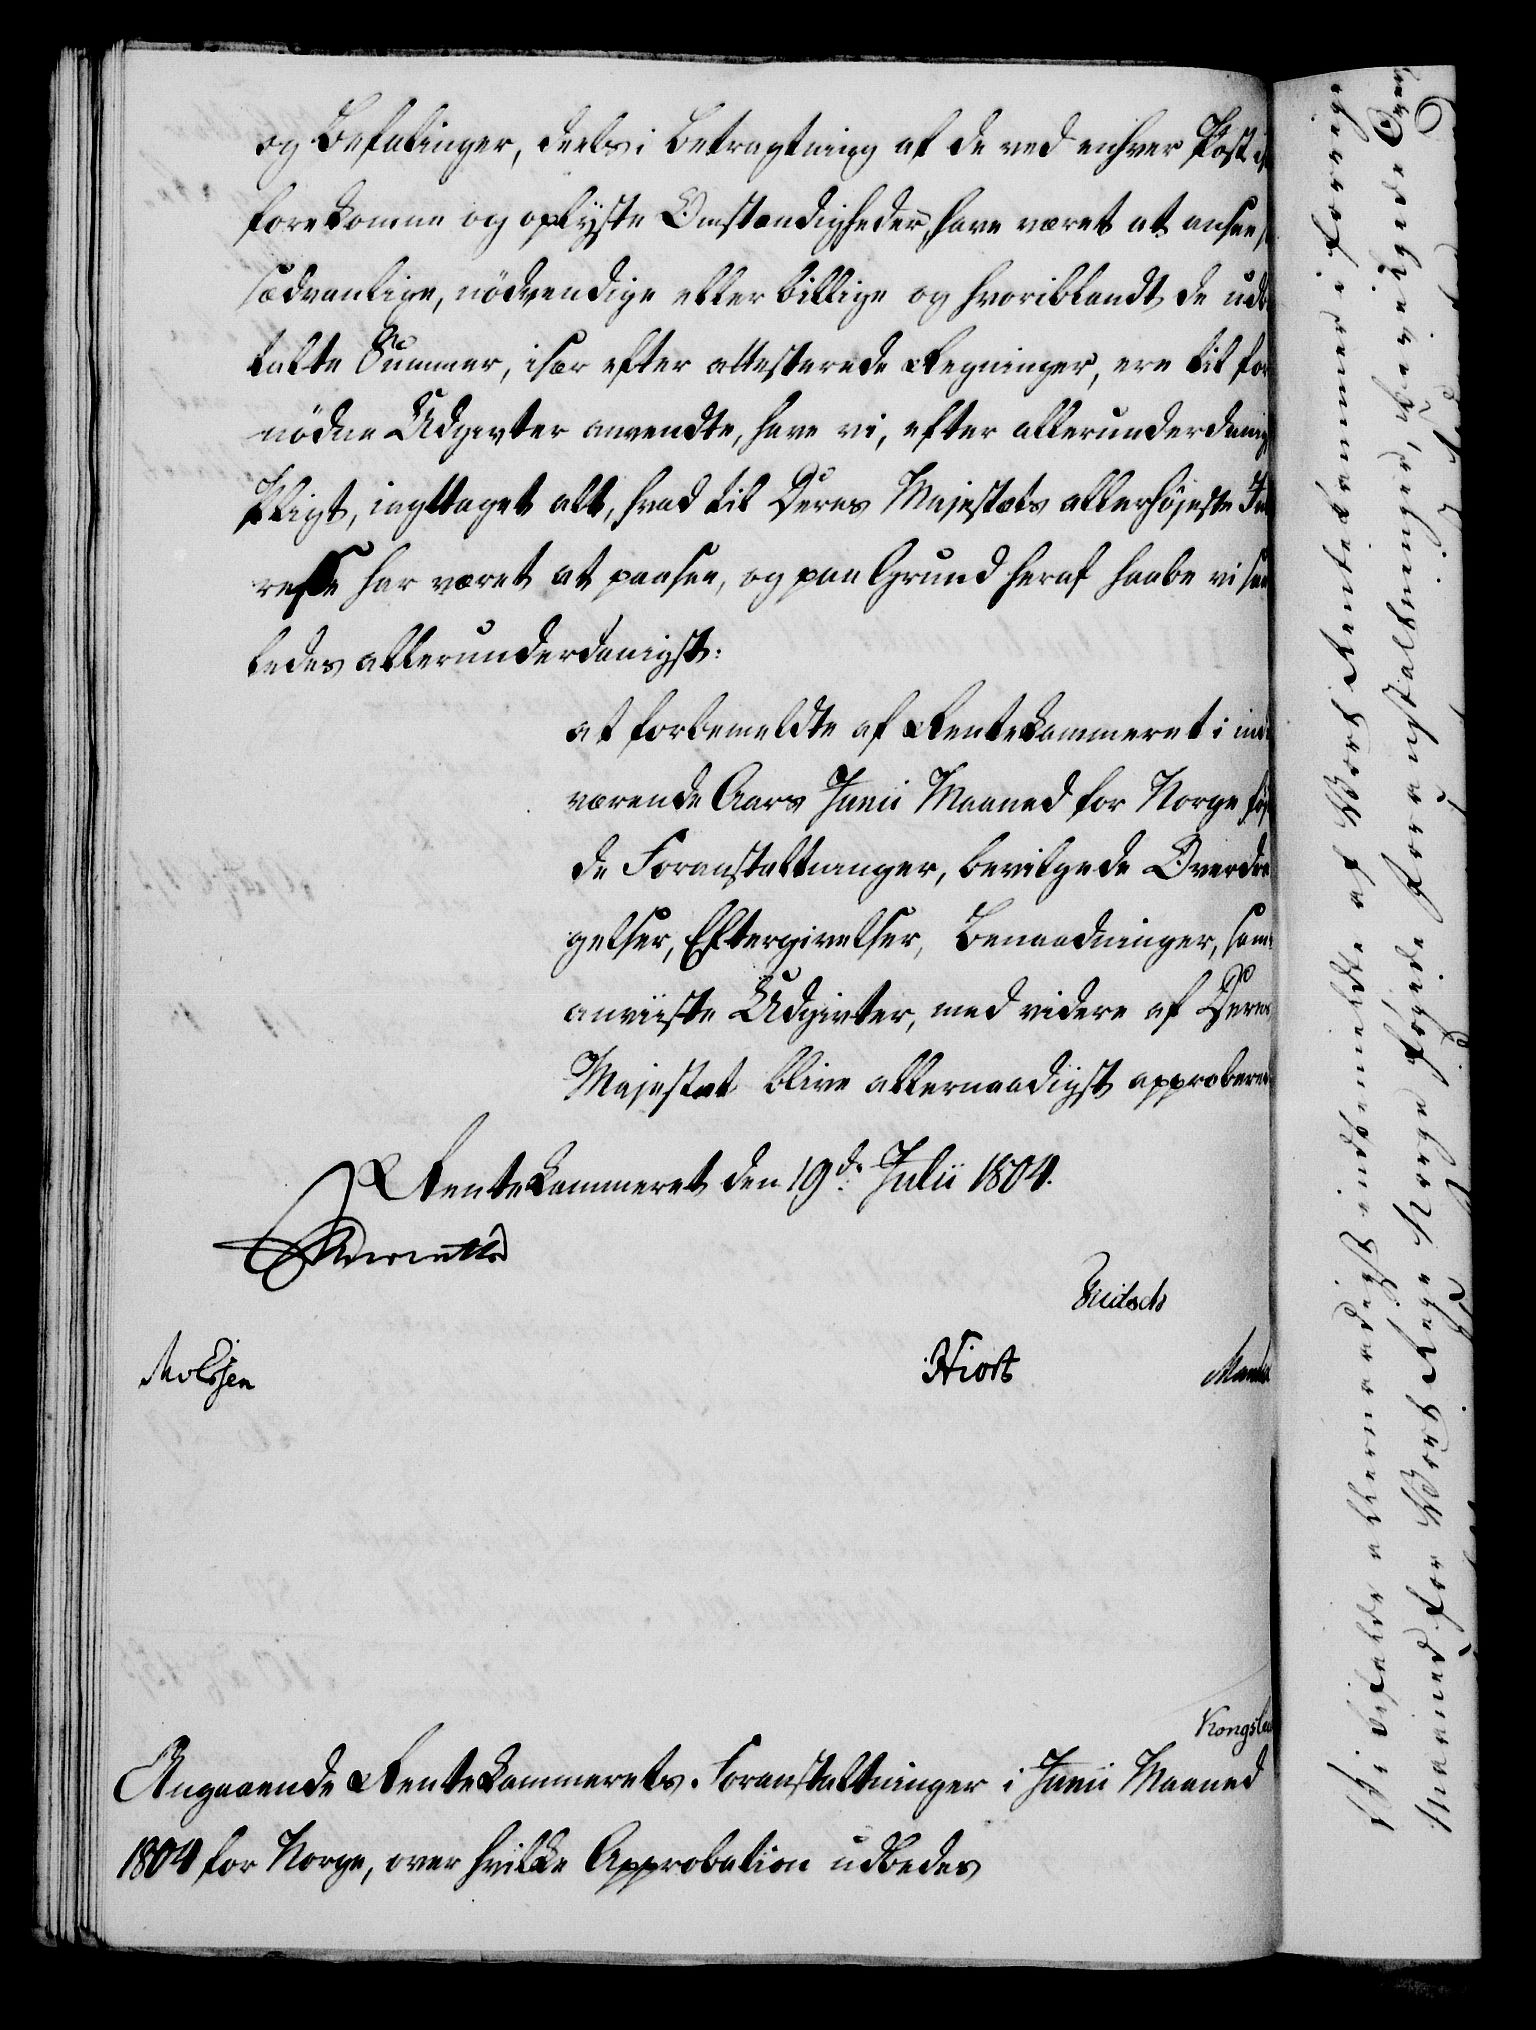 og Befalinger, deels i Betragtning af de ved enhver Post
forekomne og oplyste Omstændigheder, have været at ansee
sædvanlige, nödvendige eller billige og hvoriblandt de udb
talte Summer, især efter attesterede Regninger, ere til for
nödne Udgivter anvendte, have vi, efter allerunderdanig
Pligt, iagttaget alt, hvad til Deres Majestæts allerhöjeste Int
resse har været at paasee, og paa Grund heraf haabe vi saa
ledes allerunderdanigst:
at forbemeldte af Rentekammeret i inde
værende Aars Junii Maaned for Norge föj
de Foranstaltninger, bevilgede Overdra
gelser, Eftergivelser, Benaadninger, samt
anviiste Udgivter, med videre af Deres
Majestæt blive allernaadigst approberet
Rentekammeret den 19de Julii 1804.
Reventlow
Wildsch
Hiort
Kongsle
Angaaende Rentekammerets Foranstaltninger i Junii Maaned
1804 for Norge, over hvilke Approbation udbedes
Vi bifalde allernaadigst indbemeldte af Vort Rentekammer i forrige
Maaned for Vort Rige Norge föjede Foranstaltninger, bevilgede Over